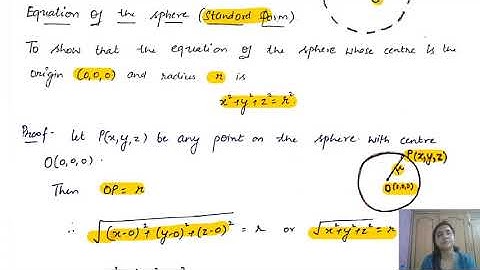 Equation of the sphere (Standard form)
To show that the equation of the sphere whose centre is the
origin (0,0,0) and radius r is
x²+y²+z²=r²
Proof- let P(x,y,z) be any point on the sphere with centre
O(0,0,0).
P(x,y,z)
r
O(0,0,0)
Then OP = r
∴ √(x-0)²+(y-0)²+(z-0)² = r or √x²+y²+z² = r